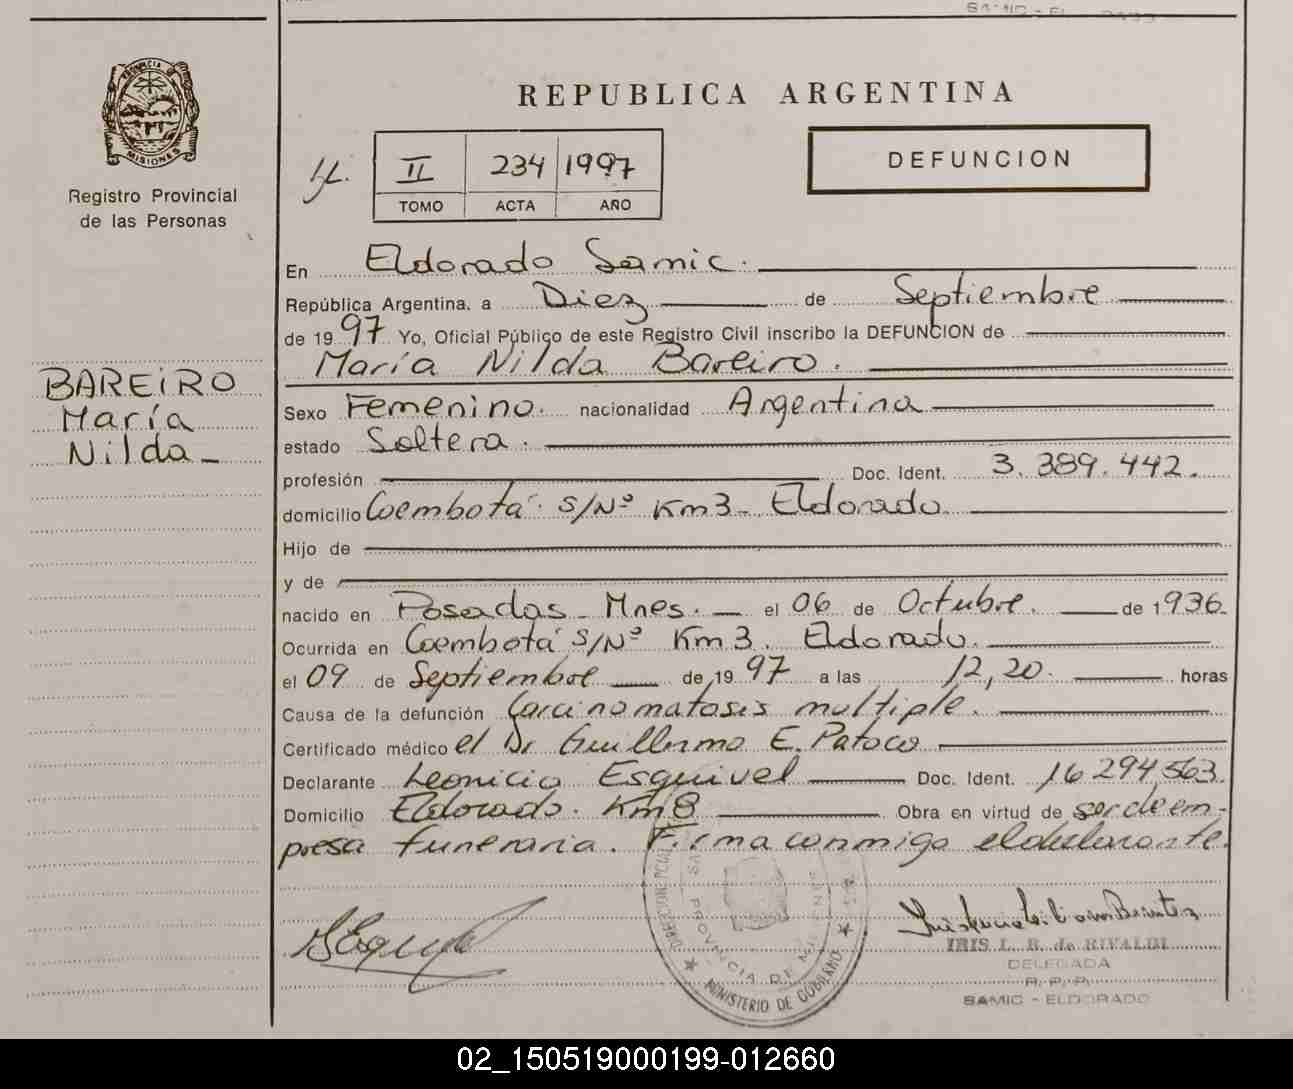 PROVINCIA DE
MISIONES
Registro Provincial
de las Personas
BAREIRO
María
Nilda
REPUBLICA ARGENTINA
II 234 1997
TOMO ACTA AÑO
DEFUNCION
En Eldorado Samic.
República Argentina, a Diez de Septiembre
de 1997 Yo, Oficial Público de este Registro Civil inscribo la DEFUNCION de
María Nilda Bareiro.
Sexo Femenino. nacionalidad Argentina
estado Soltera.
profesión Doc. Ident. 3.389.442.
domicilio Coembotá S/Nº Km3. Eldorado.
Hijo de
y de
nacido en Posadas Mnes. el 06 de Octubre. de 1936.
Ocurrida en Coembotá S/Nº Km3. Eldorado.
el 09 de Septiembre de 1997 a las 12,20. horas
Causa de la defunción Carcinomatosis multiple.
Certificado médico el Dr Guillermo E. Patoco
Declarante Leonicio Esquivel Doc. Ident. 16294563
Domicilio Eldorado. Km 8 Obra en virtud de ser de em-
presa funeraria. Firma conmigo el declarante.
PROVINCIA DE MISIONES
MINISTERIO DE GOBIERNO
IRIS L. B. de RIVALDI
DELEGADA
R. P. P.
SAMIC - ELDORADO
02_150519000199-012660